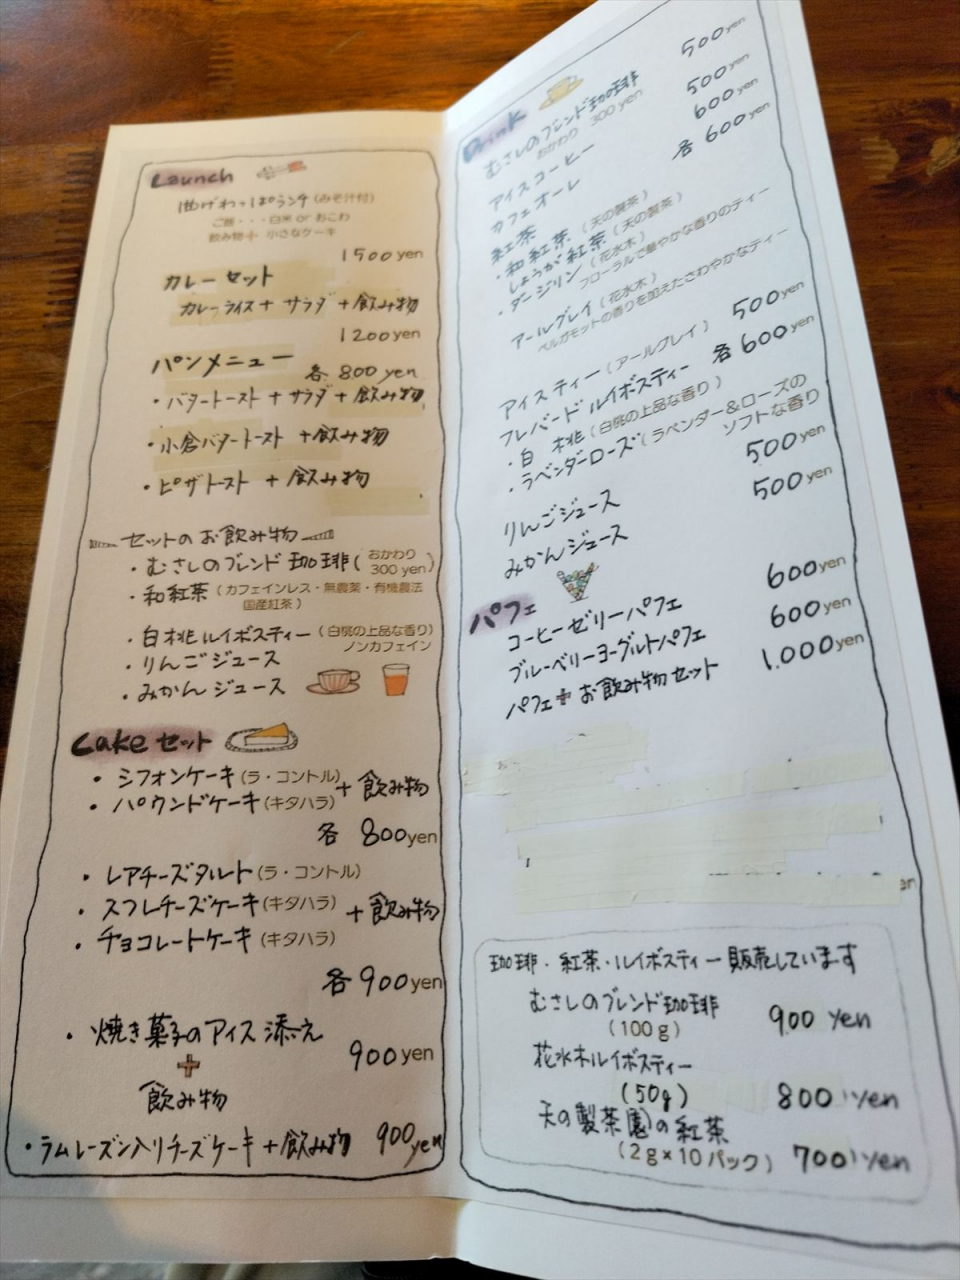 Launch
曲げわっぱランチ(みそ汁付)
ご飯・・・白米 or おこわ
飲み物+小さなケーキ
1500yen
カレーセット
カレーライス+サラダ+飲み物
1200yen
パンメニュー
各800yen
・バタートースト+サラダ+飲み物
・小倉バタートースト+飲み物
・ピザトースト+飲み物
セットのお飲み物
・むさしのブレンド珈琲(おかわり 300yen)
・和紅茶(カフェインレス・無農薬・有機農法
国産紅茶)
・白桃ルイボスティー(白桃の上品な香り)
ノンカフェイン
・りんごジュース
・みかんジュース
Cakeセット
・シフォンケーキ(ラ・コントル)
・パウンドケーキ(キタハラ)
+飲み物
各800yen
・レアチーズタルト(ラ・コントル)
・スフレチーズケーキ(キタハラ)
+飲み物
・チョコレートケーキ(キタハラ)
各900yen
・焼き菓子のアイス添え
+
900yen
飲み物
・ラムレーズン入りチーズケーキ+飲み物 900yen
Drink
むさしのブレンド珈琲 500yen
おかわり 300yen
アイスコーヒー 500yen
カフェオーレ 600yen
紅茶 各600yen
・和紅茶(天の製茶)
・しょうが紅茶(天の製茶)
・ダージリン(花水木)
フローラルで華やかな香りのティー
アールグレイ(花水木)
ベルガモットの香りを加えたさわやかなティー
アイスティー(アールグレイ) 500yen
フレバードルイボスティー 各600yen
・白桃(白桃の上品な香り)
・ラベンダーローズ(ラベンダー&ローズの
ソフトな香り
りんごジュース 500yen
みかんジュース 500yen
パフェ
コーヒーゼリーパフェ 600yen
ブルーベリーヨーグルトパフェ 600yen
パフェ+お飲み物セット 1,000yen
珈琲・紅茶・ルイボスティー販売しています
むさしのブレンド珈琲
(100g)
900 yen
花水木ルイボスティー
(50g)
800 yen
天の製茶園の紅茶
(2g×10パック) 700 yen